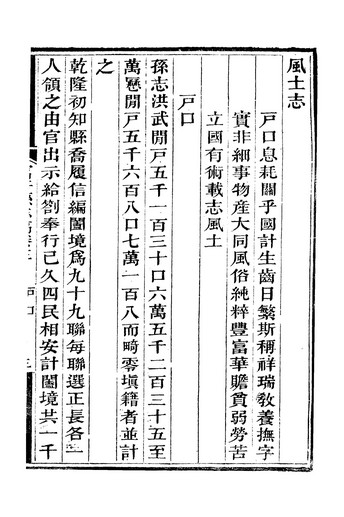 風土志
戸口息耗關乎國計生齒日繁斯稱祥瑞敎養撫字
實非細事物産大同風俗純粹豐富華贍貧弱勞苦
立國有術載志風土
戸口
孫志洪武閒戸五千一百三十口六萬五千二百三十五至
萬厯閒戸五千六百八口七萬一百八而畸零塡籍者並計
之
乾隆初知縣喬履信編闔境爲九十九聯每聯選正長各一
人領之由官出示給劄奉行已久四民相安計闔境共一千
戸口
三